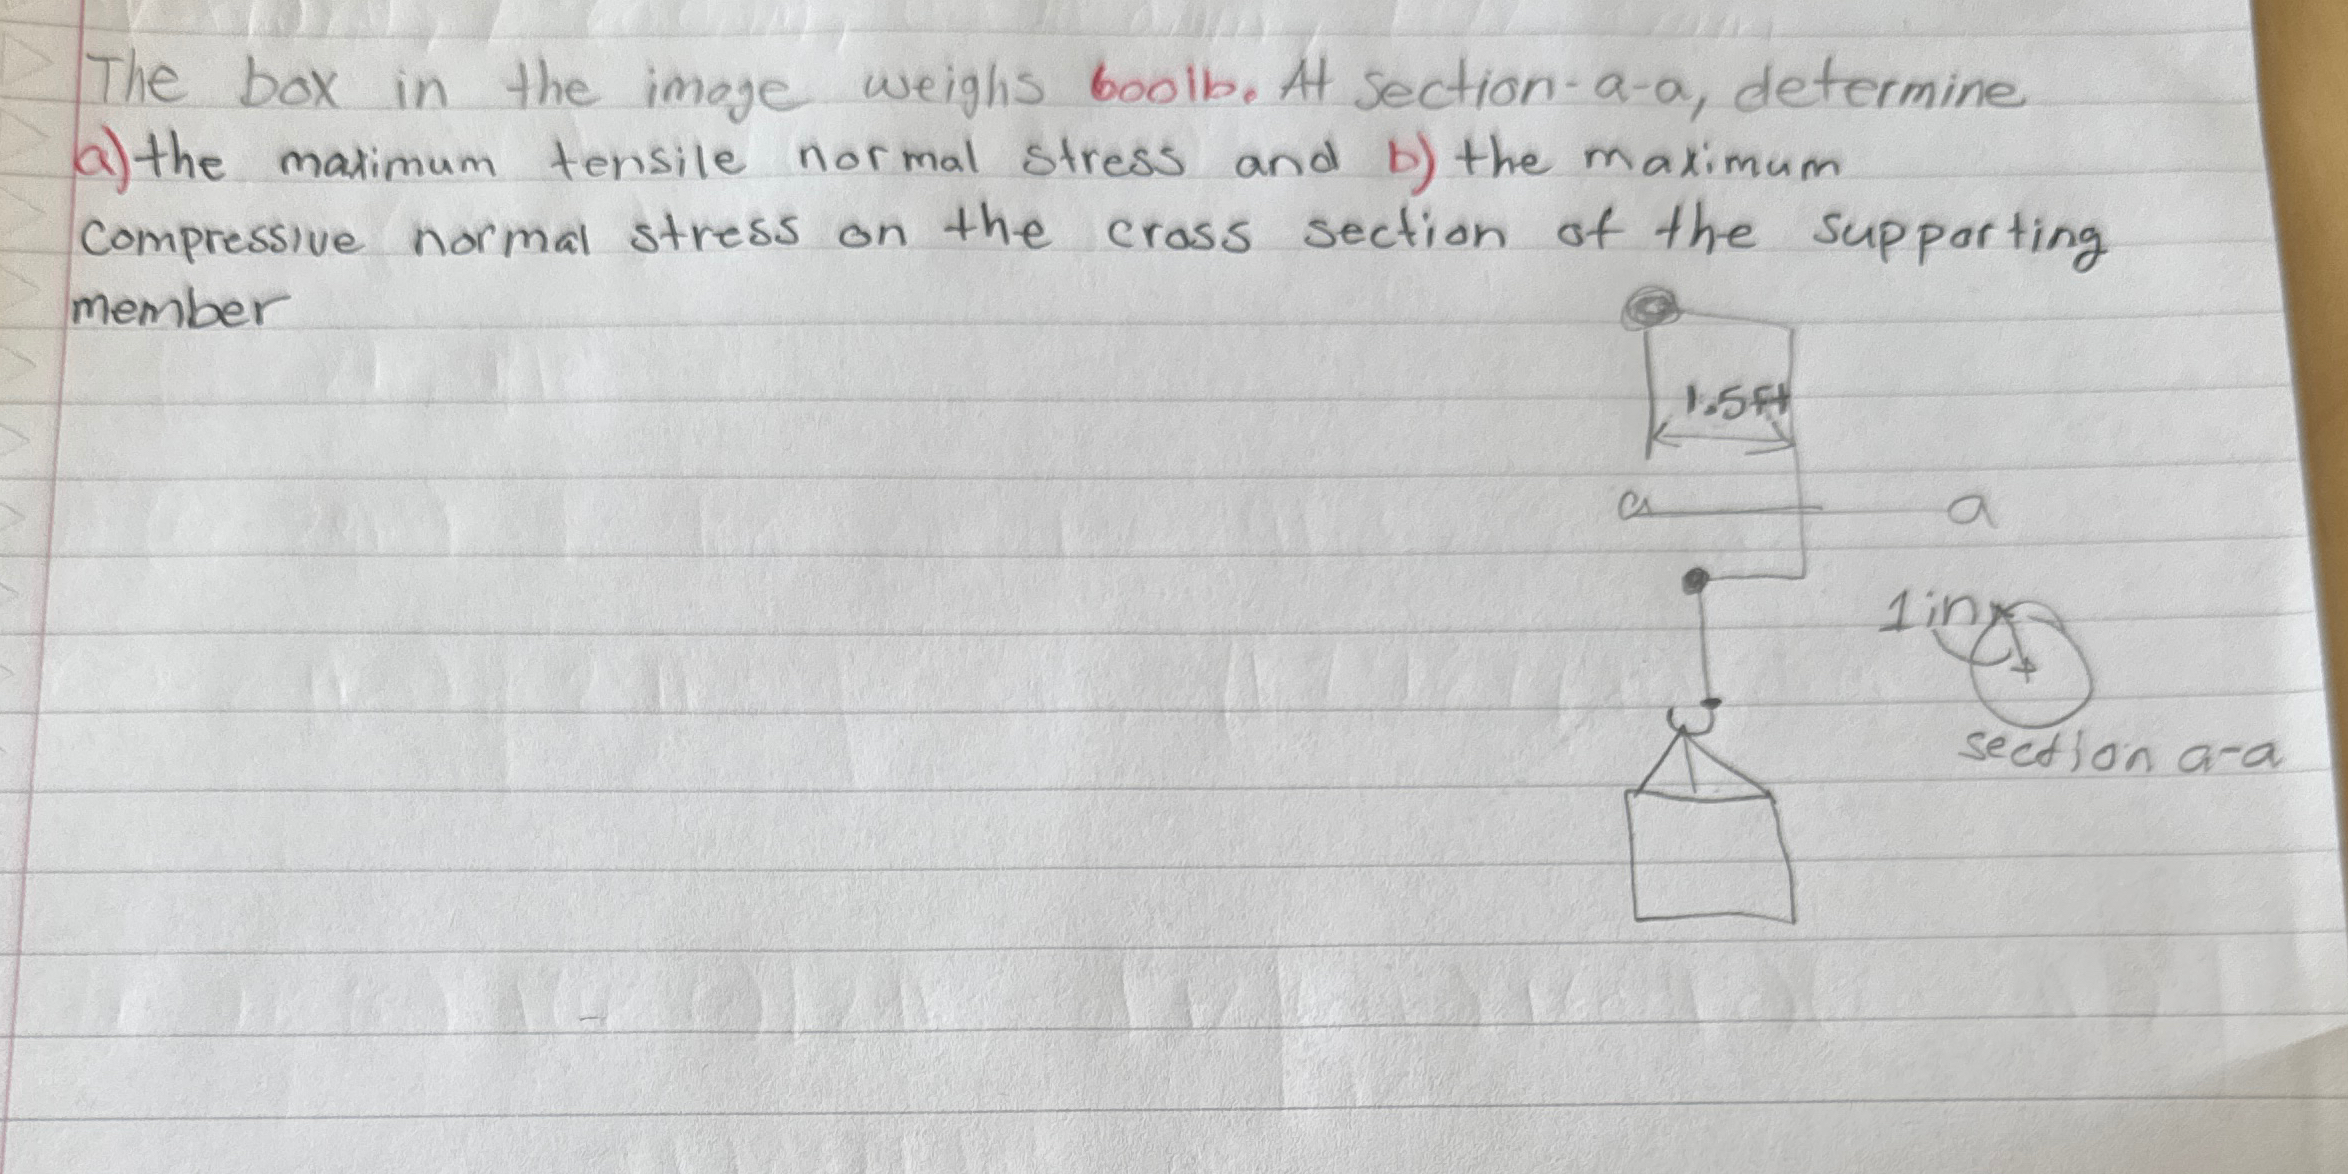 The box in the image weighs 600lb. At section-a-a, determine
a) the maximum tensile normal stress and b) the maximum
compressive normal stress on the cross section of the supporting
member
1.5ft
a a
1in
section a-a